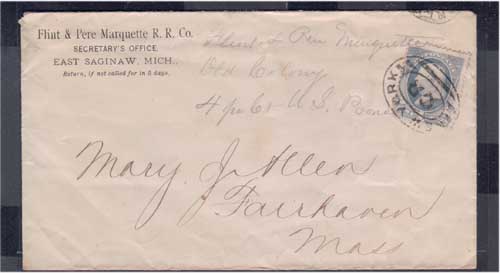 Flint & Pere Marquette R. R. Co.
SECRETARY'S OFFICE,
EAST SAGINAW, MICH.,
Return, if not called for in 5 days.
Flint & Pere Marquette
Old Colony
4 per Ct U.S.
Mary J. Allen
Fairhaven
Mass